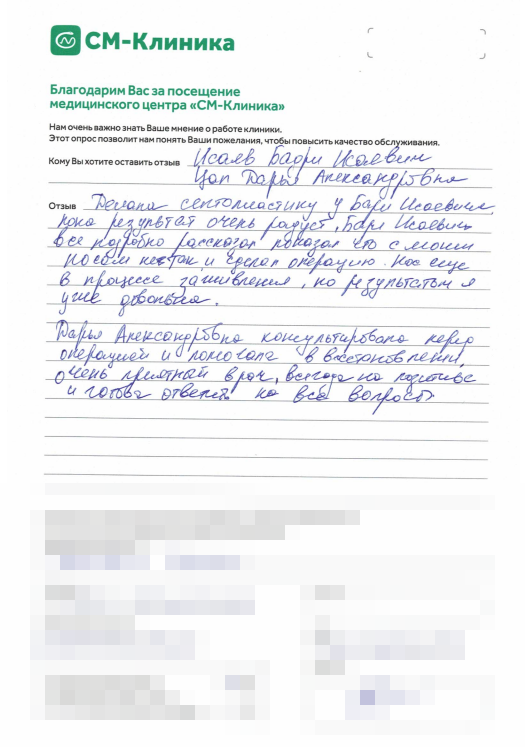 СМ-Клиника
Благодарим Вас за посещение
медицинского центра «СМ-Клиника»
Нам очень важно знать Ваше мнение о работе клиники.
Этот опрос позволит нам понять Ваши пожелания, чтобы повысить качество обслуживания.
Кому Вы хотите оставить отзыв Исаев Бадри Исаевич
Цап Дарья Александровна
Отзыв Делала септопластику у Бадри Исаевича,
пока результат очень радует, Бадри Исаевич
все подробно рассказал показал что с моим
носом не так и сделал операцию. Нос еще
в процессе заживления, но результатом я
уже довольна.
Дарья Александровна консультировала перед
операцией и помогала в восстановлении,
очень приятный врач, всегда на позитиве
и готова ответить на все вопросы